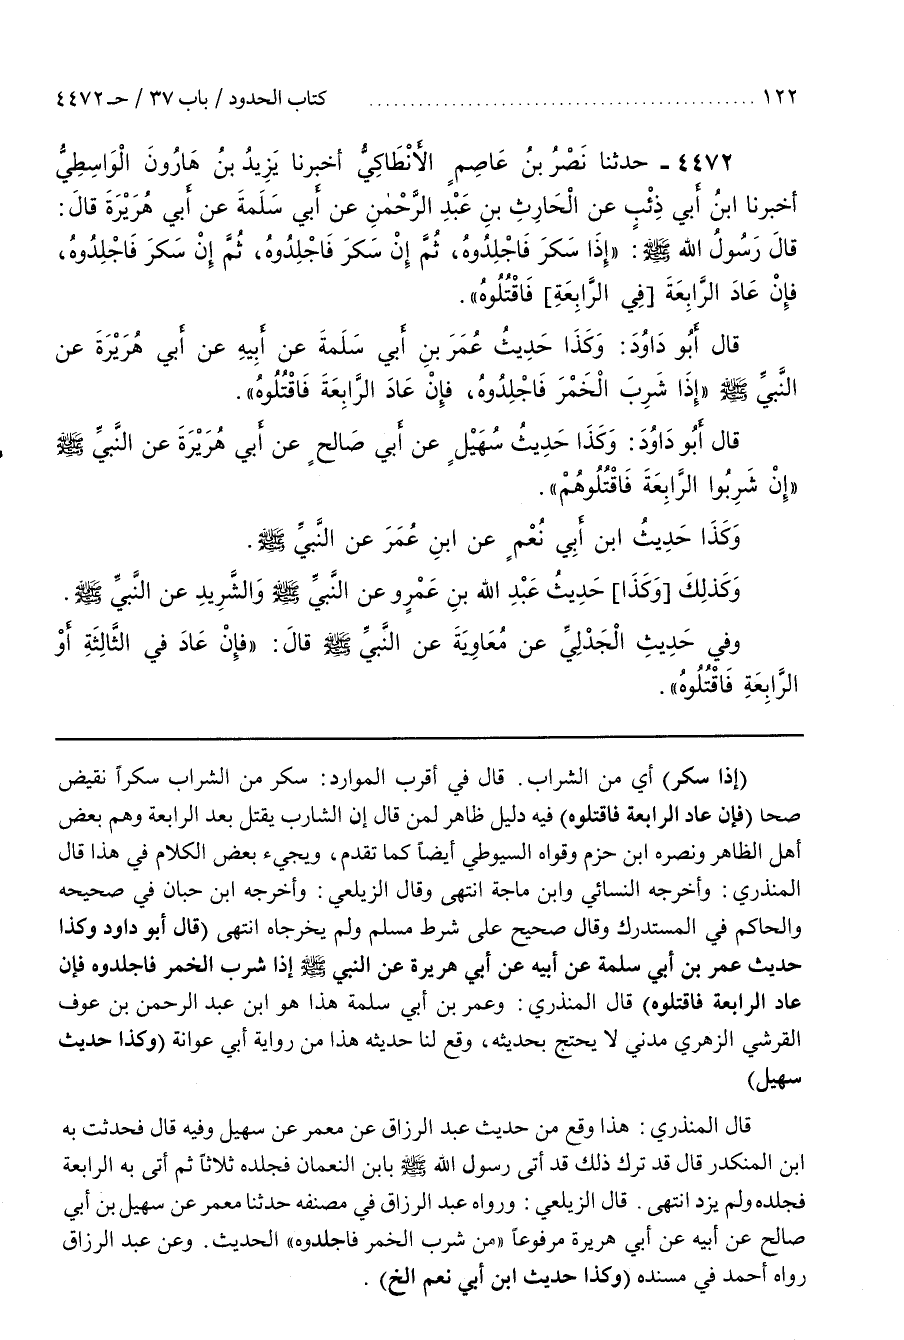 ١٢٢ ............................................... كتاب الحدود / باب ٣٧ / حـ ٤٤٧٢
٤٤٧٢ ـ حدثنا نَصْرُ بنُ عَاصِمٍ الأَنْطَاكِيُّ أخبرنا يَزِيدُ بنُ هَارُونَ الْوَاسِطِيُّ
أخبرنا ابنُ أبي ذِئْبٍ عن الْحَارِثِ بنِ عَبْدِ الرَّحْمٰنِ عن أبي سَلَمَةَ عن أبي هُرَيْرَةَ قالَ:
قالَ رَسُولُ الله ﷺ: «إِذَا سَكَرَ فَاجْلِدُوهُ، ثُمَّ إِنْ سَكرَ فَاجْلِدُوهُ، ثُمَّ إِنْ سَكرَ فَاجْلِدُوهُ،
فإِنْ عَادَ الرَّابِعَةَ [فِي الرَّابِعَةِ] فَاقْتُلُوهُ».
قال أَبُو دَاوُدَ: وَكَذَا حَدِيثُ عُمَرَ بنِ أبي سَلَمةَ عن أبِيهِ عن أبي هُرَيْرَةَ عن
النَّبيِّ ﷺ «إِذَا شَرِبَ الْخَمْرَ فَاجْلِدُوهُ، فإِنْ عَادَ الرَّابِعَةَ فَاقْتُلُوهُ».
قال أَبُو دَاوُدَ: وَكَذَا حَدِيثُ سُهَيْلٍ عن أبي صَالحٍ عن أبي هُرَيْرَةَ عن النَّبيِّ ﷺ
«إِنْ شَرِبُوا الرَّابِعَةَ فَاقْتُلُوهُمْ».
وَكَذَا حَدِيثُ ابن أبي نُعْمٍ عن ابنِ عُمَرَ عن النَّبيِّ ﷺ.
وَكَذلِكَ [وَكَذَا] حَدِيثُ عَبْدِ الله بنِ عَمْرٍو عن النَّبيِّ ﷺ وَالشَّرِيدِ عن النَّبيِّ ﷺ.
وفي حَدِيثِ الْجَدْلِيِّ عن مُعَاوِيَةَ عن النَّبيِّ ﷺ قالَ: «فإِنْ عَادَ في الثَّالِثَةِ أَوْ
الرَّابِعَةِ فَاقْتُلُوهُ».
(إذا سكر) أي من الشراب. قال في أقرب الموارد: سكر من الشراب سكراً نقيض
صحا (فإن عاد الرابعة فاقتلوه) فيه دليل ظاهر لمن قال إن الشارب يقتل بعد الرابعة وهم بعض
أهل الظاهر ونصره ابن حزم وقواه السيوطي أيضاً كما تقدم، ويجيء بعض الكلام في هذا قال
المنذري: وأخرجه النسائي وابن ماجة انتهى وقال الزيلعي: وأخرجه ابن حبان في صحيحه
والحاكم في المستدرك وقال صحيح على شرط مسلم ولم يخرجاه انتهى (قال أبو داود وكذا
حديث عمر بن أبي سلمة عن أبيه عن أبي هريرة عن النبي ﷺ إذا شرب الخمر فاجلدوه فإن
عاد الرابعة فاقتلوه) قال المنذري: وعمر بن أبي سلمة هذا هو ابن عبد الرحمن بن عوف
القرشي الزهري مدني لا يحتج بحديثه، وقع لنا حديثه هذا من رواية أبي عوانة (وكذا حديث
سهيل)
قال المنذري: هذا وقع من حديث عبد الرزاق عن معمر عن سهيل وفيه قال فحدثت به
ابن المنكدر قال قد ترك ذلك قد أتى رسول الله ﷺ بابن النعمان فجلده ثلاثاً ثم أتى به الرابعة
فجلده ولم يزد انتهى. قال الزيلعي: ورواه عبد الرزاق في مصنفه حدثنا معمر عن سهيل بن أبي
صالح عن أبيه عن أبي هريرة مرفوعاً «من شرب الخمر فاجلدوه» الحديث. وعن عبد الرزاق
رواه أحمد في مسنده (وكذا حديث ابن أبي نعم الخ).